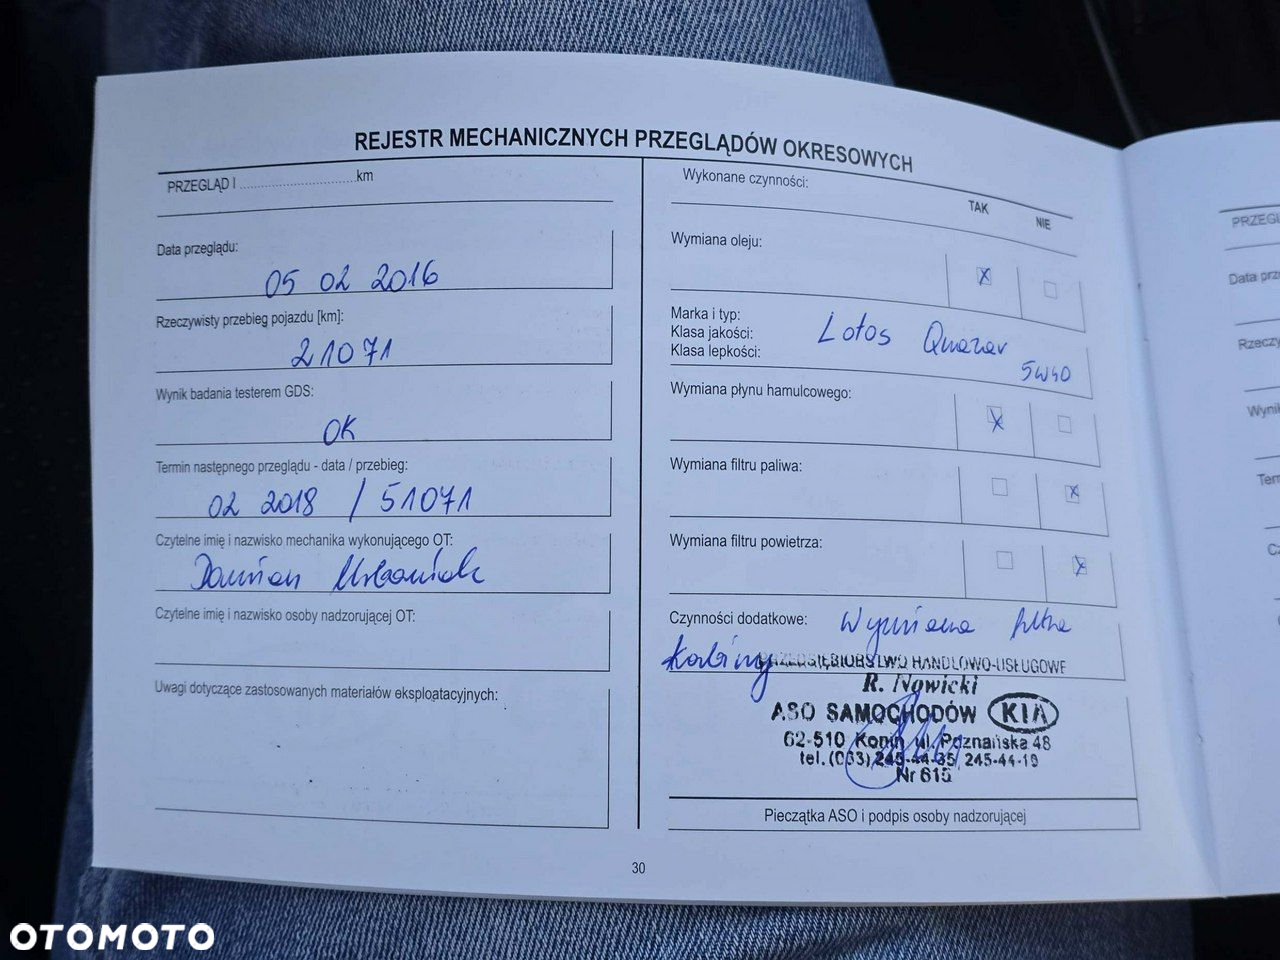 REJESTR MECHANICZNYCH PRZEGLĄDÓW OKRESOWYCH
PRZEGLĄD I ..............................km
Data przeglądu:
05 02 2016
Rzeczywisty przebieg pojazdu [km]:
21071
Wynik badania testerem GDS:
OK
Termin następnego przeglądu - data / przebieg:
02 2018 / 51071
Czytelne imię i nazwisko mechanika wykonującego OT:
Damian Urbaniak
Czytelne imię i nazwisko osoby nadzorującej OT:
Uwagi dotyczące zastosowanych materiałów eksploatacyjnych:
Wykonane czynności:
TAK NIE
Wymiana oleju:
X
Marka i typ:
Klasa jakości:
Klasa lepkości:
Lotos Quazar
5W40
Wymiana płynu hamulcowego:
X
Wymiana filtru paliwa:
X
Wymiana filtru powietrza:
X
Czynności dodatkowe: Wymiana filtra
kabiny
PRZEDSIĘBIORSTWO HANDLOWO-USŁUGOWE
R. Nowicki
ASO SAMOCHODÓW KIA
62-510 Konin, ul. Poznańska 48
tel. (063) 245-44-35, 245-44-19
Nr 615
Pieczątka ASO i podpis osoby nadzorującej
30
PRZEGL
Data prze
Rzeczy
Wynik
Ter
OTOMOTO